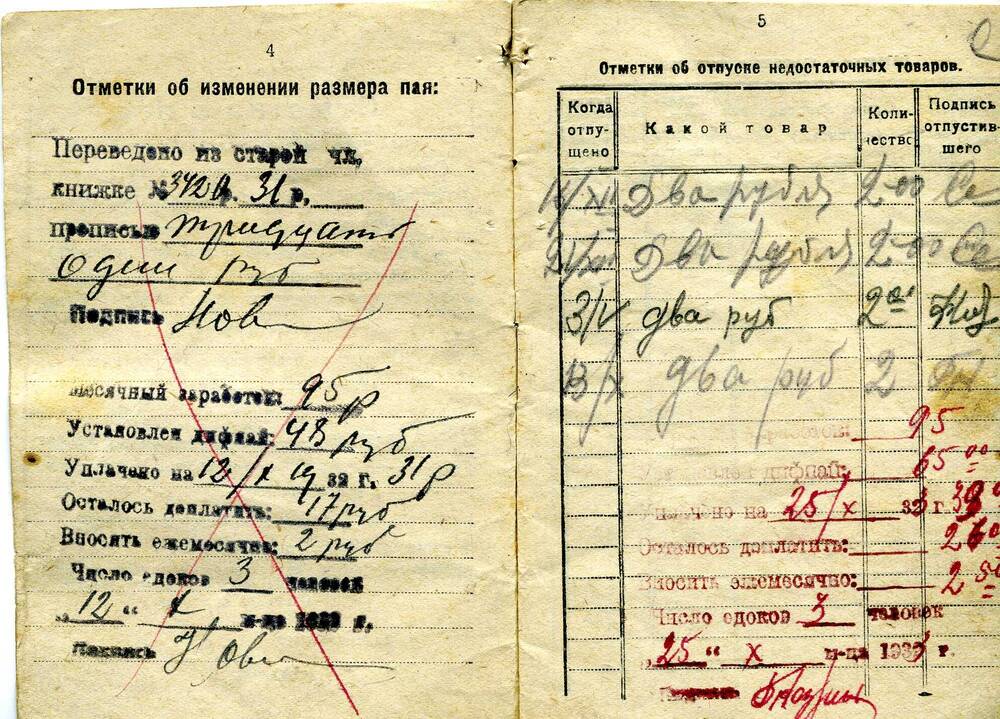 4
Отметки об изменении размера пая:
Переведено из старой чл.
книжке № 342 31 р.
прописью тридцать
один руб
Подпись Нов
Месячный заработок: 95 р
Установлен дифпай: 48 руб
Уплачено на 12/X 1932 г. 31 р
Осталось доплатить: 17 руб
Вносить ежемесячно: 2 руб
Число едоков 3 человек
„12" X м-ца 1932 г.
Подпись Нов
5
Отметки об отпуске недостаточных товаров.
Когда отпущено Какой товар Количество Подпись отпустившего
14/XI Два рубля 2-00
21/XII Два рубля 2-00
3/V два руб 2
13/X два руб 2
95
Установлен дифпай: 65 00
Уплачено на 25/X 33 г. 39
Осталось доплатить: 26 00
Вносить ежемесячно: 2 50
Число едоков 3 человек
„25" X м-ца 1933 г.